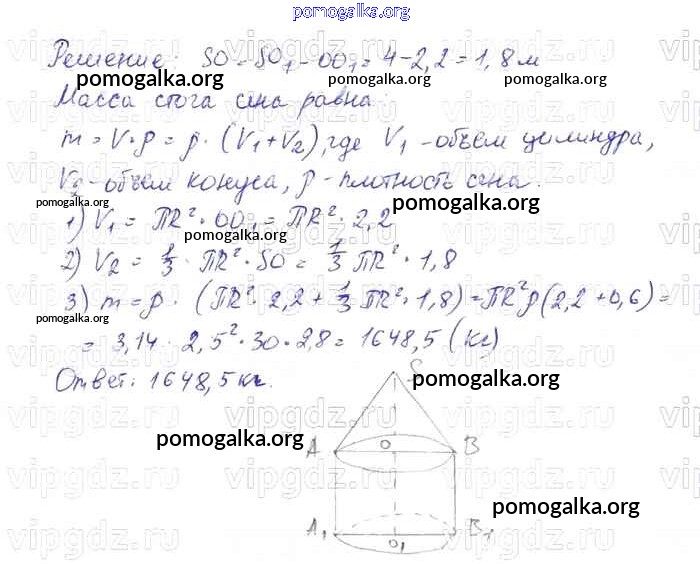 pomogalka.org
Решение: SO = SO₁ - OO₁ = 4 - 2,2 = 1,8 м
pomogalka.org pomogalka.org pomogalka.org
Масса стога сена равна:
m = V·ρ = ρ · (V₁ + V₂), где V₁ - объем цилиндра,
V₂ - объем конуса, ρ - плотность сена.
pomogalka.org pomogalka.org
1) V₁ = πR² · OO₁ = πR² · 2,2
pomogalka.org
2) V₂ = 1/3 · πR² · SO = 1/3 πR² · 1,8
3) m = ρ · (πR² · 2,2 + 1/3 πR² · 1,8) = πR²ρ(2,2 + 0,6) =
pomogalka.org
= 3,14 · 2,5² · 30 · 2,8 = 1648,5 (кг)
Ответ: 1648,5 кг.
S
pomogalka.org
pomogalka.org
A O B
pomogalka.org
A₁ O₁ B₁
vipgdz.ru